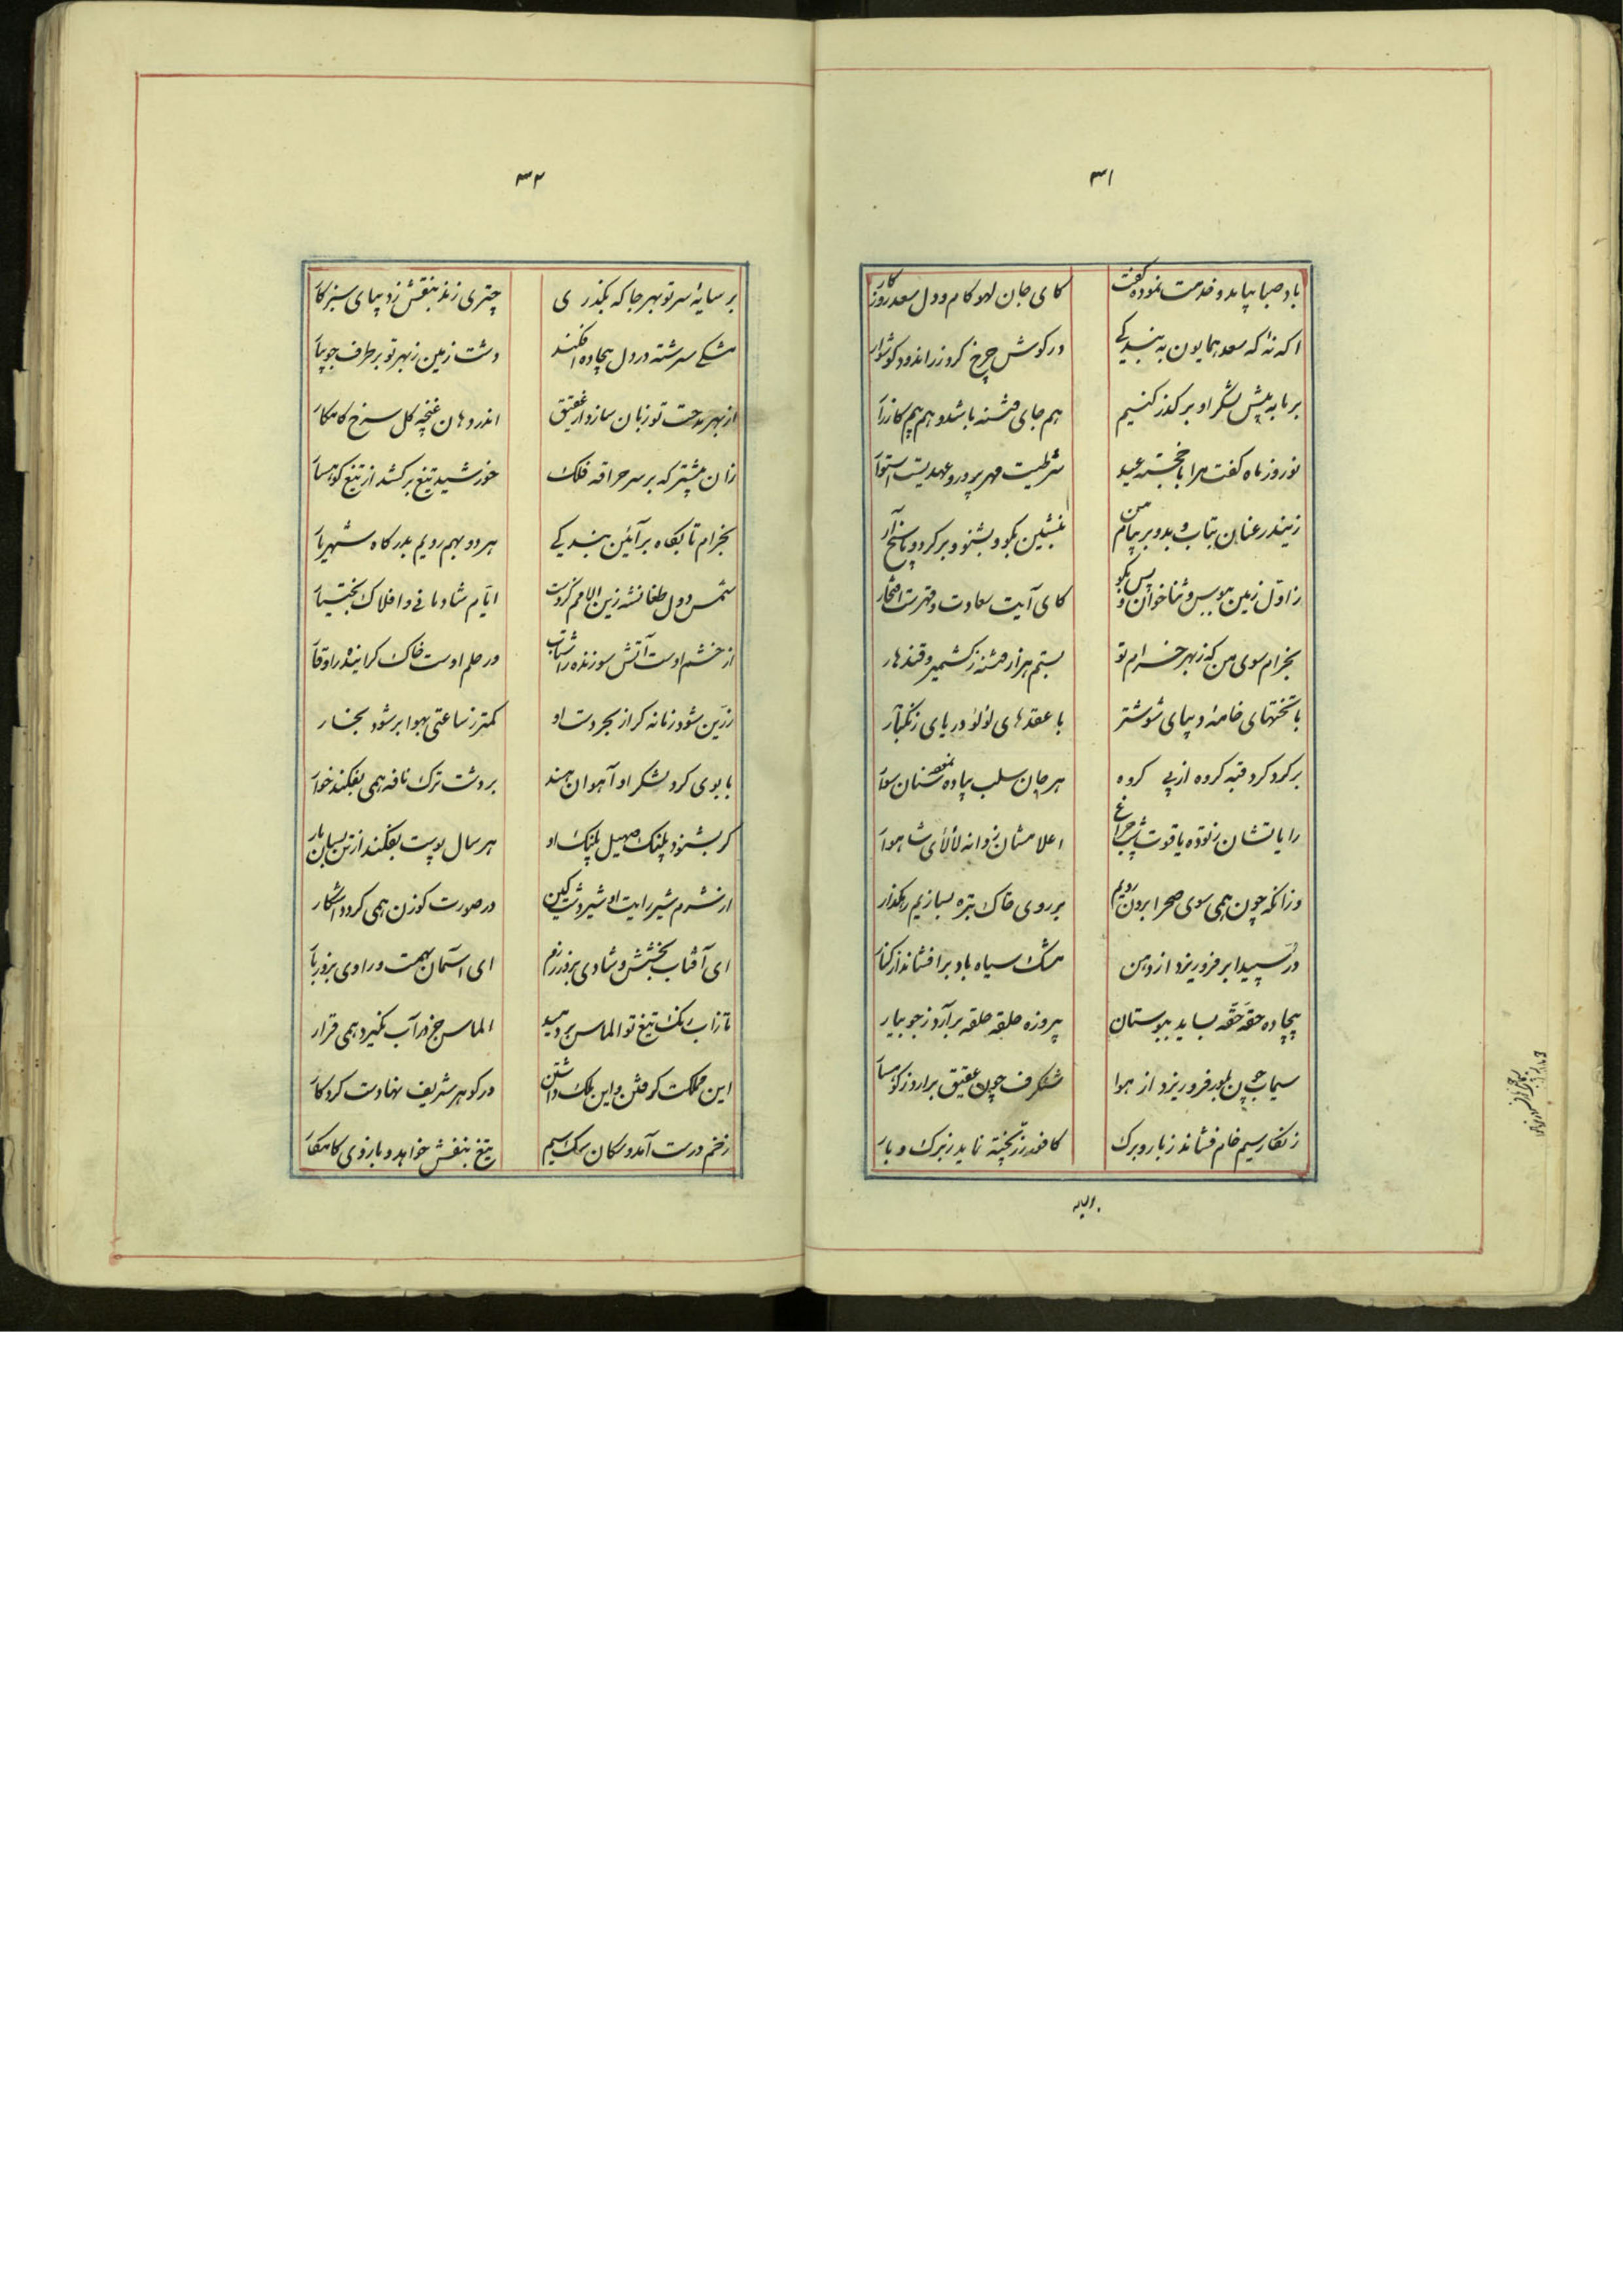 ۳۱
باد صبا بیامد و خدمت نمود و گفت
کای جان لهو کام و دل سعد روزکار
اکه نهٔ که سعد همایون به بندکی
در کوش چرخ کرد زر اندود کوشوار
بر ما به پیش لشکر او بر کذر کنیم
هم جای فتنه باشد و هم بیم کارزار
نوروز ماه کفت مرا با خجسته عید
شرطیست مهر پرور و عهدیست استوار
زیندر عنان بتاب و بدو بر پیام من
بنشین بکو و بشنو و بر کرد و پاسخ آر
ز اول زمین ببوس و ثنا خوان و پس بکو
کای آیت سعادت و فهرست افتخار
بخرام سوی من که ز بهر خرام تو
بستم هزار فتنه ز کشمیر و قندهار
با تختهای خامهٔ دیبای شوشتر
با عقدهای لؤلؤ دریای زنکبار
بر کرد کرد قبه کروه از پی کروه
هر جان سلب پیاده سنان سوار
رایاتشان ز توده یاقوت شب چراغ
اعلامشان ز دانه لالای شاهوار
وزانکه چون همی سوی صحرا برون رویم
بر روی خاک تیره بسازیم رهکذار
در سپید ابر فرو ریزد از دهن
مشک سیاه باد بر افشاند از کنار
بیجاده حقه حقه بساید ببوستان
پیروزه حلقه حلقه بر آرد ز جویبار
سیماب چون بلور فرو ریزد از هوا
شنکرف چون عقیق برارد ز کوهسار
زنکار سیم خام فشاند ز بار و برک
کافور زر پخته نماید ز برک و بار
بر سایه
۳۲
بر سایهٔ سر تو بهر جا که بکذری
چتری زند بنفش ز دیبای سبز کار
مشکی سرشته در دل بیجاده افکند
دشت زمین ز بهر تو بر طرف جویبار
از بهر مدحت تو زبان سازد از عقیق
اندر دهان غنچه کل سرخ کامکار
زان پیشتر که بر سر حراقه فلک
خورشید تیغ بر کشد از تیغ کوهسار
بخرام تا بکاه بر آئین بندکی
هر دو بهم رویم بدرکاه شهریار
شمس دول طغانشه زین الامم کزوست
ایام شادمانی و افلاک بختیار
از خشم اوست آتش سوزنده را شتاب
در حلم اوست خاک کراینده را وقار
زرین شود زمانه کر از بحر دست او
کمتر ز ساعتی بهوا بر شود بخار
با بوی کرد لشکر او آهوان هند
بر دشت ترک نافه همی بفکنند خوار
کر بشنود پلنک صهیل پلنک او
هر سال پوست بفکند از تن بسان مار
از شرم شیر رایت او شیر دشت کین
در صورت کوزن همی کردد آشکار
ای آفتاب بخشش و شادی بروز رزم
ای آسمان بهمت و رادی بروز بار
تا زاب رنک تیغ تو الماس بر دمید
الماس جز در آب نکیرد همی قرار
این مملکت کرفتن و این ملک داشتن
در کوهر شریف نهادت کردکار
زخم درست آمد و سکان سیم
تیغ بنفش خواهد و بازوی کامکار